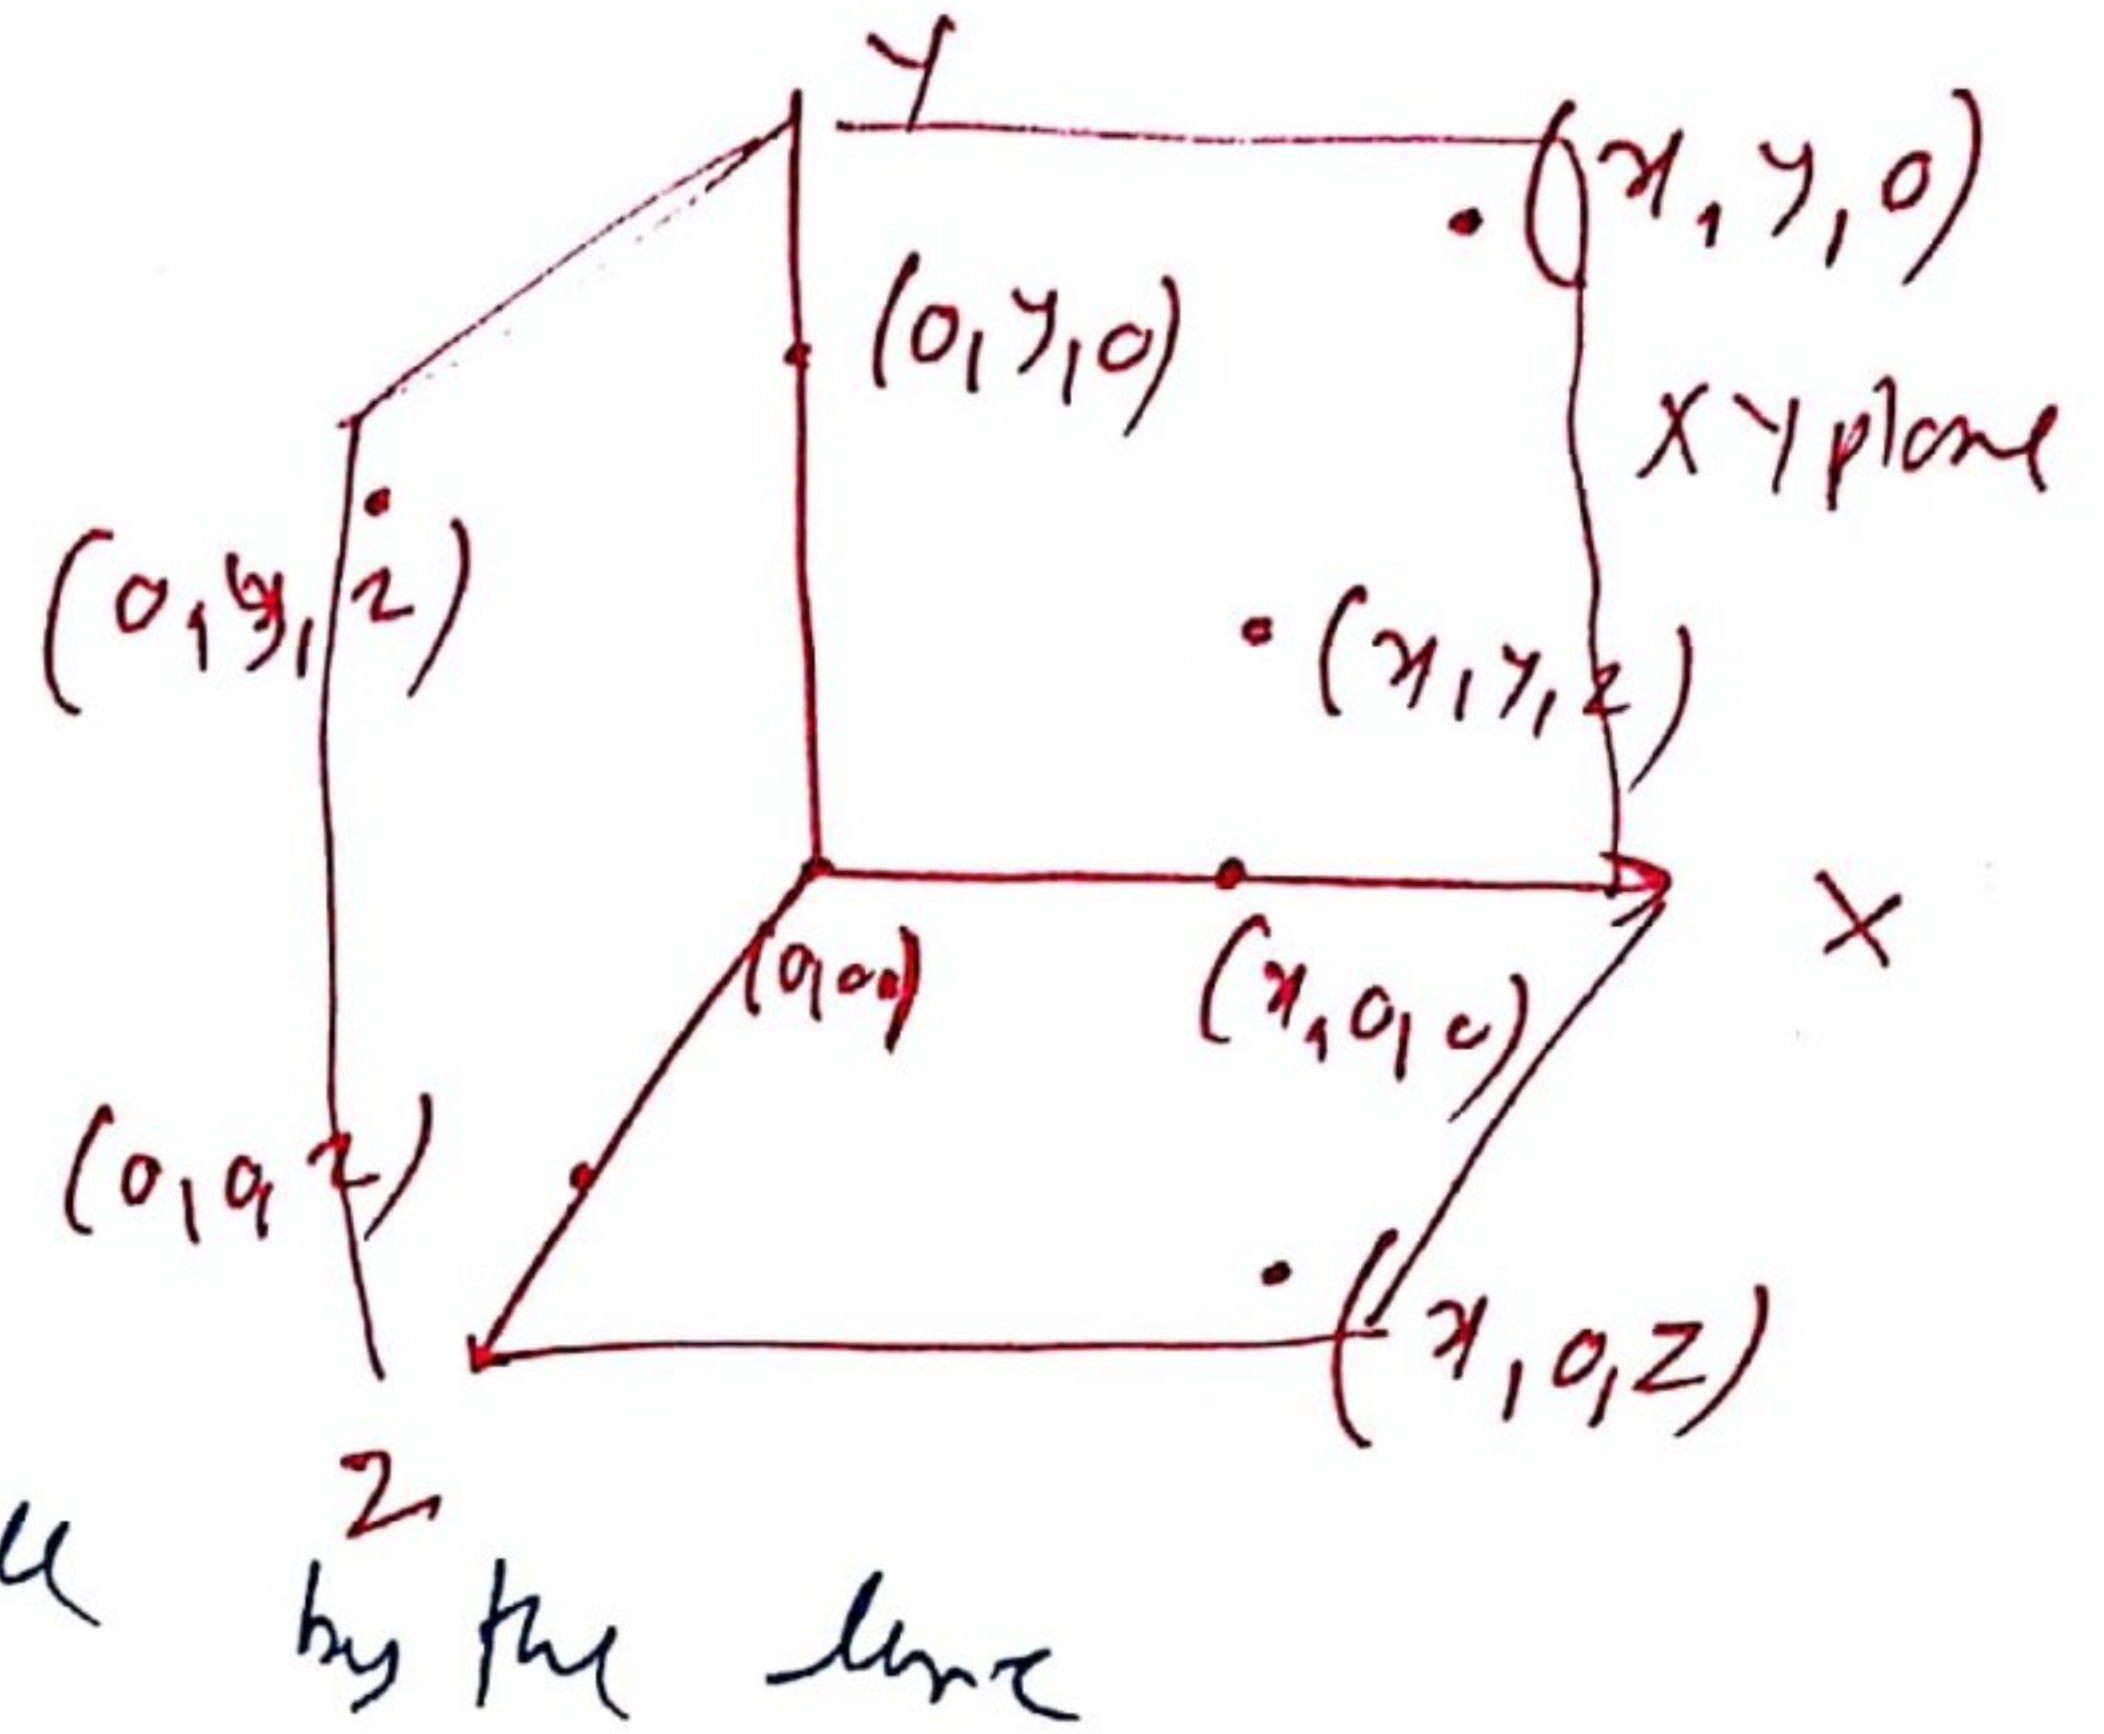 Y
(x, y, 0)
(0, y, 0)
XY plane
(0, y, z)
(x, y, z)
X
(0,00)
(x, 0, 0)
(0, 0, z)
(x, 0, z)
Z
by the line